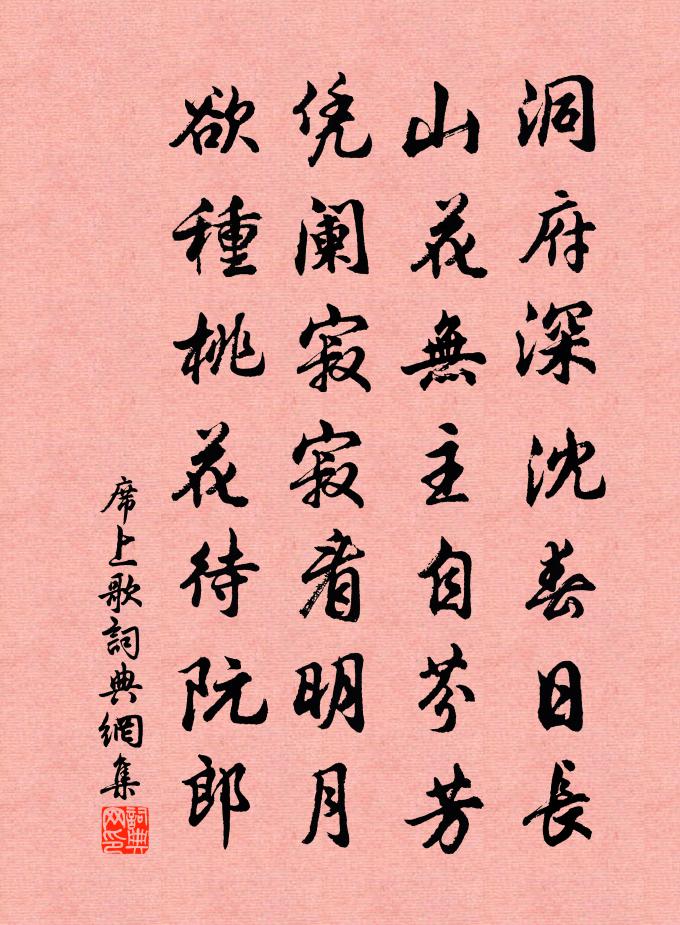 洞府深沈春日長
山花無主自芬芳
凭阑寂寂看明月
欲種桃花待阮郎
席上歌詞典網集
詞典网印